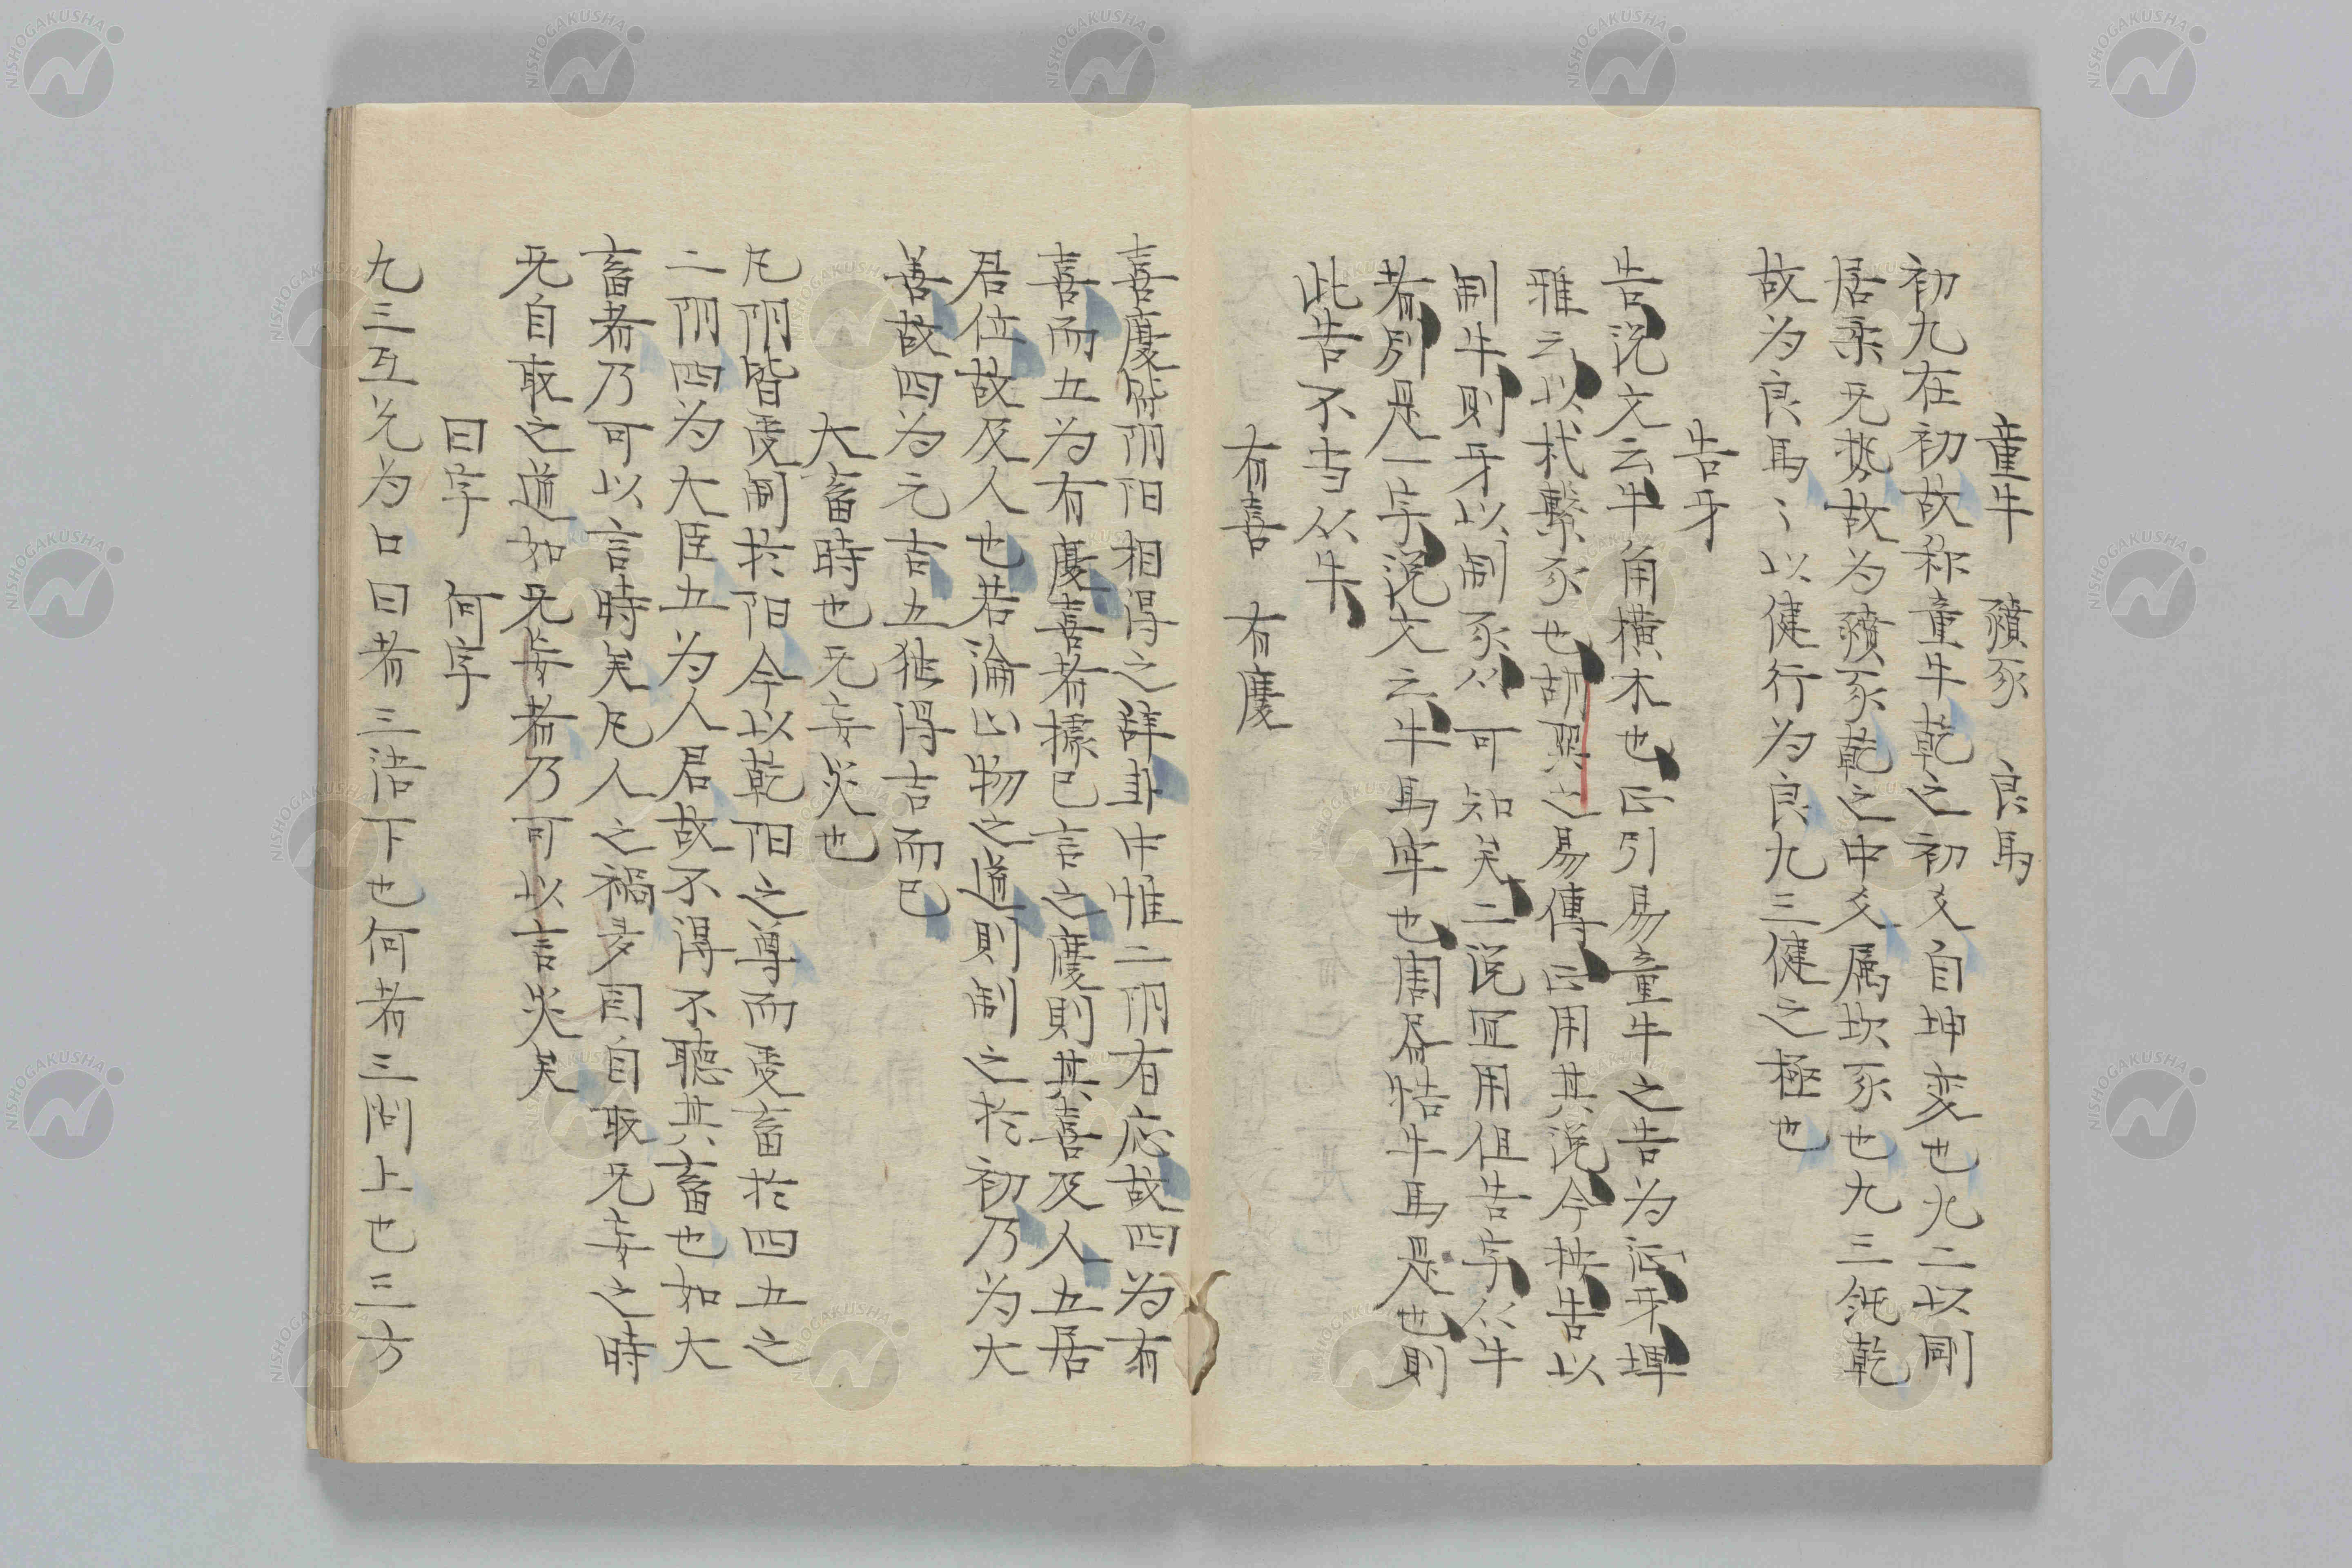 童牛　豶豕　良馬
初九在初故称童牛乾之初爻自坤变也九二以剛
居柔无勢故为豶豕乾之中爻属坎豕也九三純乾
故为良馬〻以健行为良九三健之極也
告牙
告说文云牛角横木也正引易童牛之告为证牙埤
雅云以杙繫豕也胡　之易傳正用其说今按告以
制牛則牙以制豕从可知矣二说冝用但告字从牛
者別是一字说文云牛馬牢也周昏牿牛馬是也則
此告不当从牛
有喜　有慶
喜慶皆阴阳相得之辞卦中惟二阴有应故四为有
喜而五为有慶喜者據己言之慶則其喜及人五居
君位故及人也若論止物之道則制之於初乃为大
善故四为元吉五惟得吉而已
大畜時也无妄災也
凡阴皆受制於阳今以乾阳之尊而受畜於四五之
二阴四为大臣五为人君故不得不聽其畜也如大
畜者乃可以言時矣凡人之禍多因自取无妄之時
无自取之道如无妄者乃可以言災矣
曰字　何字
九三互兑为口曰者三告下也何者三问上也三方